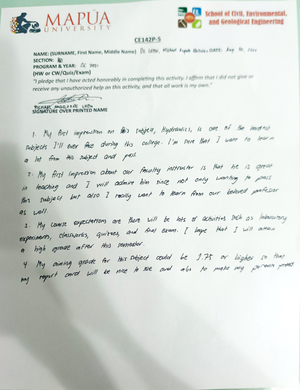 MAPÚA
UNIVERSITY
School of Civil, Environmental,
and Geological Engineering
CE142P-5
NAME: (SURNAME, First Name, Middle Name) DE LEON, DATE:
SECTION:
PROGRAM & YEAR:
[HW or CW/Quiz/Exam]
"I pledge that I have acted honorably in completing this activity. I affirm that I did not give or
receive any unauthorized help on this activity, and that all work is my own."
DE LEON
SIGNATURE OVER PRINTED NAME
1. My first impression on this subject, Hydraulics, is one of the hardest
subjects I'll ever face during this college. I'm sure that I want to learn
a lot from this subject and pass.
2. My first impression about our faculty instructor is that he is great
in teaching and I will admire him since not only wanting to pass
this subject but also I really want to learn from our beloved professor
as well.
3. My course expectations are there will be lots of activities such as laboratory
experiments, classworks, quizzes, and final exam. I hope that I will attain
a high grade after this
4. My aiming grade for this subject could be 1.75 or higher so that
my report card will be nice to see and also to make my parents proud